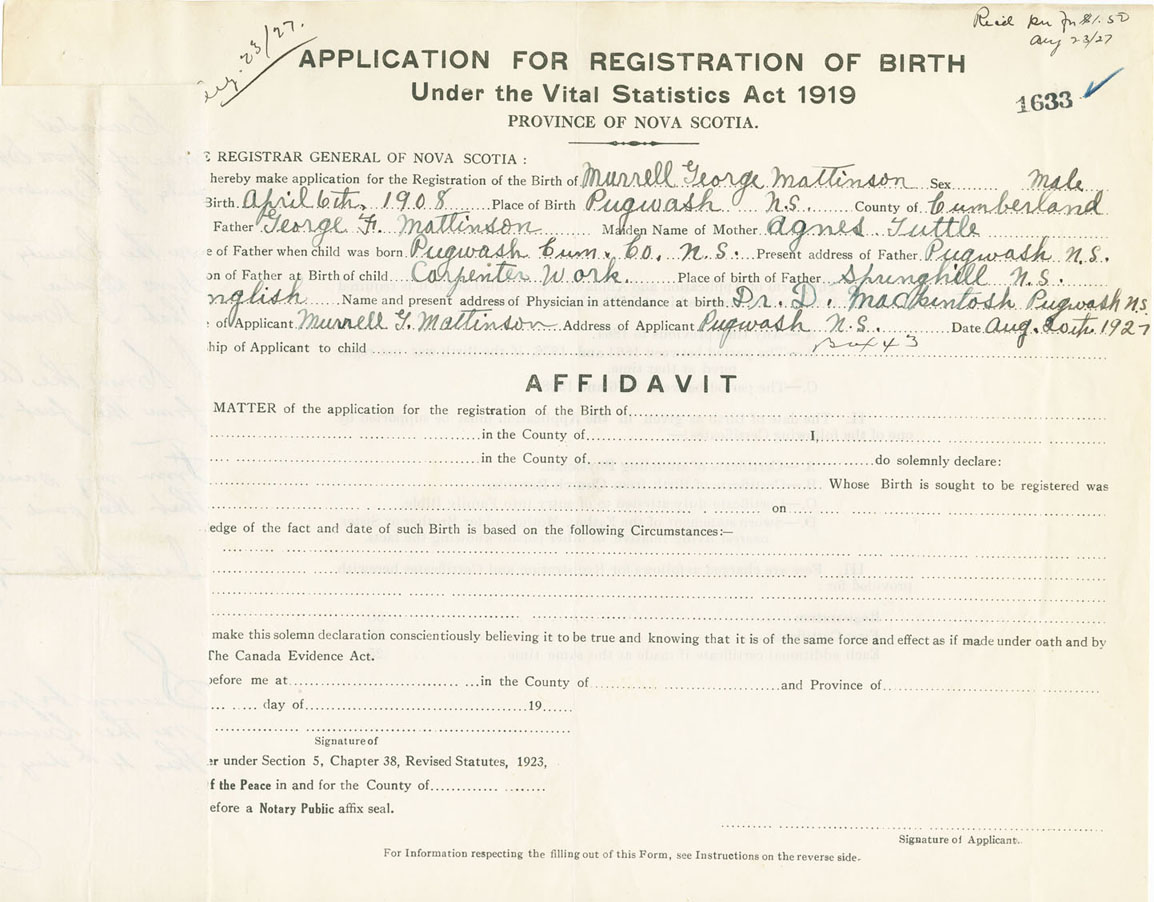 Aug. 23/27.
Rec'd $1.50
Aug 23/27
APPLICATION FOR REGISTRATION OF BIRTH
Under the Vital Statistics Act 1919
1633
PROVINCE OF NOVA SCOTIA.
E REGISTRAR GENERAL OF NOVA SCOTIA :
hereby make application for the Registration of the Birth of Murrell George Mattinson Sex Male
Birth April 6th, 1908 Place of Birth Pugwash N.S. County of Cumberland
Father George F. Mattinson Maiden Name of Mother Agnes Tuttle
e of Father when child was born Pugwash Cum. Co. N.S. Present address of Father Pugwash N.S.
on of Father at Birth of child Carpenter Work Place of birth of Father Springhill N.S.
nglish Name and present address of Physician in attendance at birth. Dr. D. Mackintosh Pugwash N.S.
e of Applicant Murrell G. Mattinson Address of Applicant Pugwash N.S. Date Aug. 20th. 1927
hip of Applicant to child Box 43
AFFIDAVIT
MATTER of the application for the registration of the Birth of
in the County of I,
in the County of do solemnly declare:
Whose Birth is sought to be registered was
on
edge of the fact and date of such Birth is based on the following Circumstances:—
make this solemn declaration conscientiously believing it to be true and knowing that it is of the same force and effect as if made under oath and by
The Canada Evidence Act.
before me at in the County of and Province of
day of 19
Signature of
er under Section 5, Chapter 38, Revised Statutes, 1923,
f the Peace in and for the County of
efore a Notary Public affix seal.
Signature of Applicant.
For Information respecting the filling out of this Form, see Instructions on the reverse side.